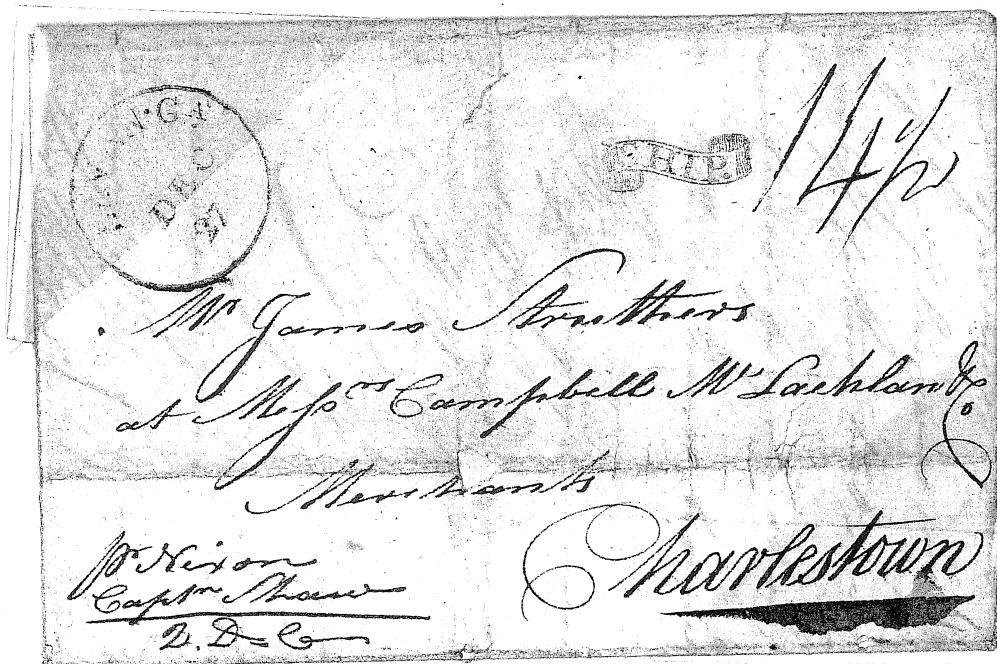 SAV. GA
DEC
27
SHIP.
14½
Mr James Struthers
at Messrs Campbell McLachlan & Co
Merchants
Charlestown
pr Nixon
Captn Shaw